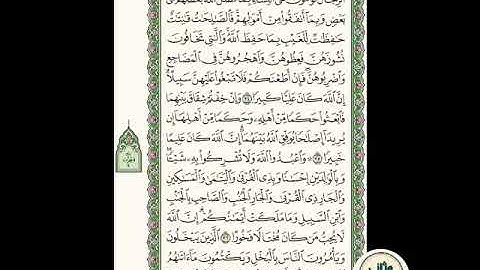 الرِّجَالُ قَوَّامُونَ عَلَى النِّسَاءِ بِمَا فَضَّلَ اللَّهُ بَعْضَهُمْ عَلَىٰ
بَعْضٍ وَبِمَا أَنفَقُوا مِنْ أَمْوَالِهِمْ فَالصَّالِحَاتُ قَانِتَاتٌ
حَافِظَاتٌ لِّلْغَيْبِ بِمَا حَفِظَ اللَّهُ وَاللَّاتِي تَخَافُونَ
نُشُوزَهُنَّ فَعِظُوهُنَّ وَاهْجُرُوهُنَّ فِي الْمَضَاجِعِ
وَاضْرِبُوهُنَّ فَإِنْ أَطَعْنَكُمْ فَلَا تَبْغُوا عَلَيْهِنَّ سَبِيلًا
إِنَّ اللَّهَ كَانَ عَلِيًّا كَبِيرًا ٣٤ وَإِنْ خِفْتُمْ شِقَاقَ بَيْنِهِمَا
فَابْعَثُوا حَكَمًا مِّنْ أَهْلِهِ وَحَكَمًا مِّنْ أَهْلِهَا إِن
يُرِيدَا إِصْلَاحًا يُوَفِّقِ اللَّهُ بَيْنَهُمَا إِنَّ اللَّهَ كَانَ عَلِيمًا
خَبِيرًا ٣٥ ۞ وَاعْبُدُوا اللَّهَ وَلَا تُشْرِكُوا بِهِ شَيْئًا
وَبِالْوَالِدَيْنِ إِحْسَانًا وَبِذِي الْقُرْبَىٰ وَالْيَتَامَىٰ وَالْمَسَاكِينِ
وَالْجَارِ ذِي الْقُرْبَىٰ وَالْجَارِ الْجُنُبِ وَالصَّاحِبِ بِالْجَنبِ
وَابْنِ السَّبِيلِ وَمَا مَلَكَتْ أَيْمَانُكُمْ إِنَّ اللَّهَ
لَا يُحِبُّ مَن كَانَ مُخْتَالًا فَخُورًا ٣٦ الَّذِينَ يَبْخَلُونَ
وَيَأْمُرُونَ النَّاسَ بِالْبُخْلِ وَيَكْتُمُونَ مَا آتَاهُمُ